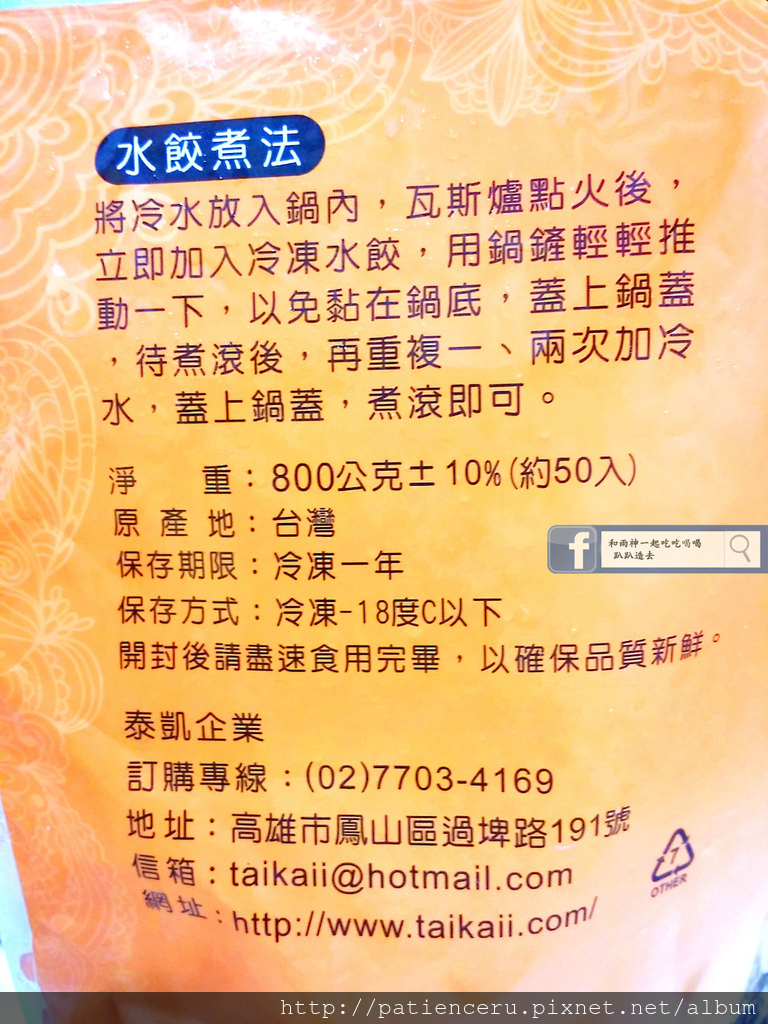 水餃煮法
將冷水放入鍋內，瓦斯爐點火後，
立即加入冷凍水餃，用鍋鏟輕輕推
動一下，以免黏在鍋底，蓋上鍋蓋
，待煮滾後，再重複一、兩次加冷
水，蓋上鍋蓋，煮滾即可。
淨　　重：800公克±10%(約50入)
原 產 地：台灣
保存期限：冷凍一年
保存方式：冷凍-18度C以下
開封後請盡速食用完畢，以確保品質新鮮。
泰凱企業
訂購專線：(02)7703-4169
地址：高雄市鳳山區過埤路191號
信箱：taikaii@hotmail.com
網址：http://www.taikaii.com/
7
OTHER
f
和雨神一起吃吃喝喝
趴趴造去
http://patienceru.pixnet.net/album